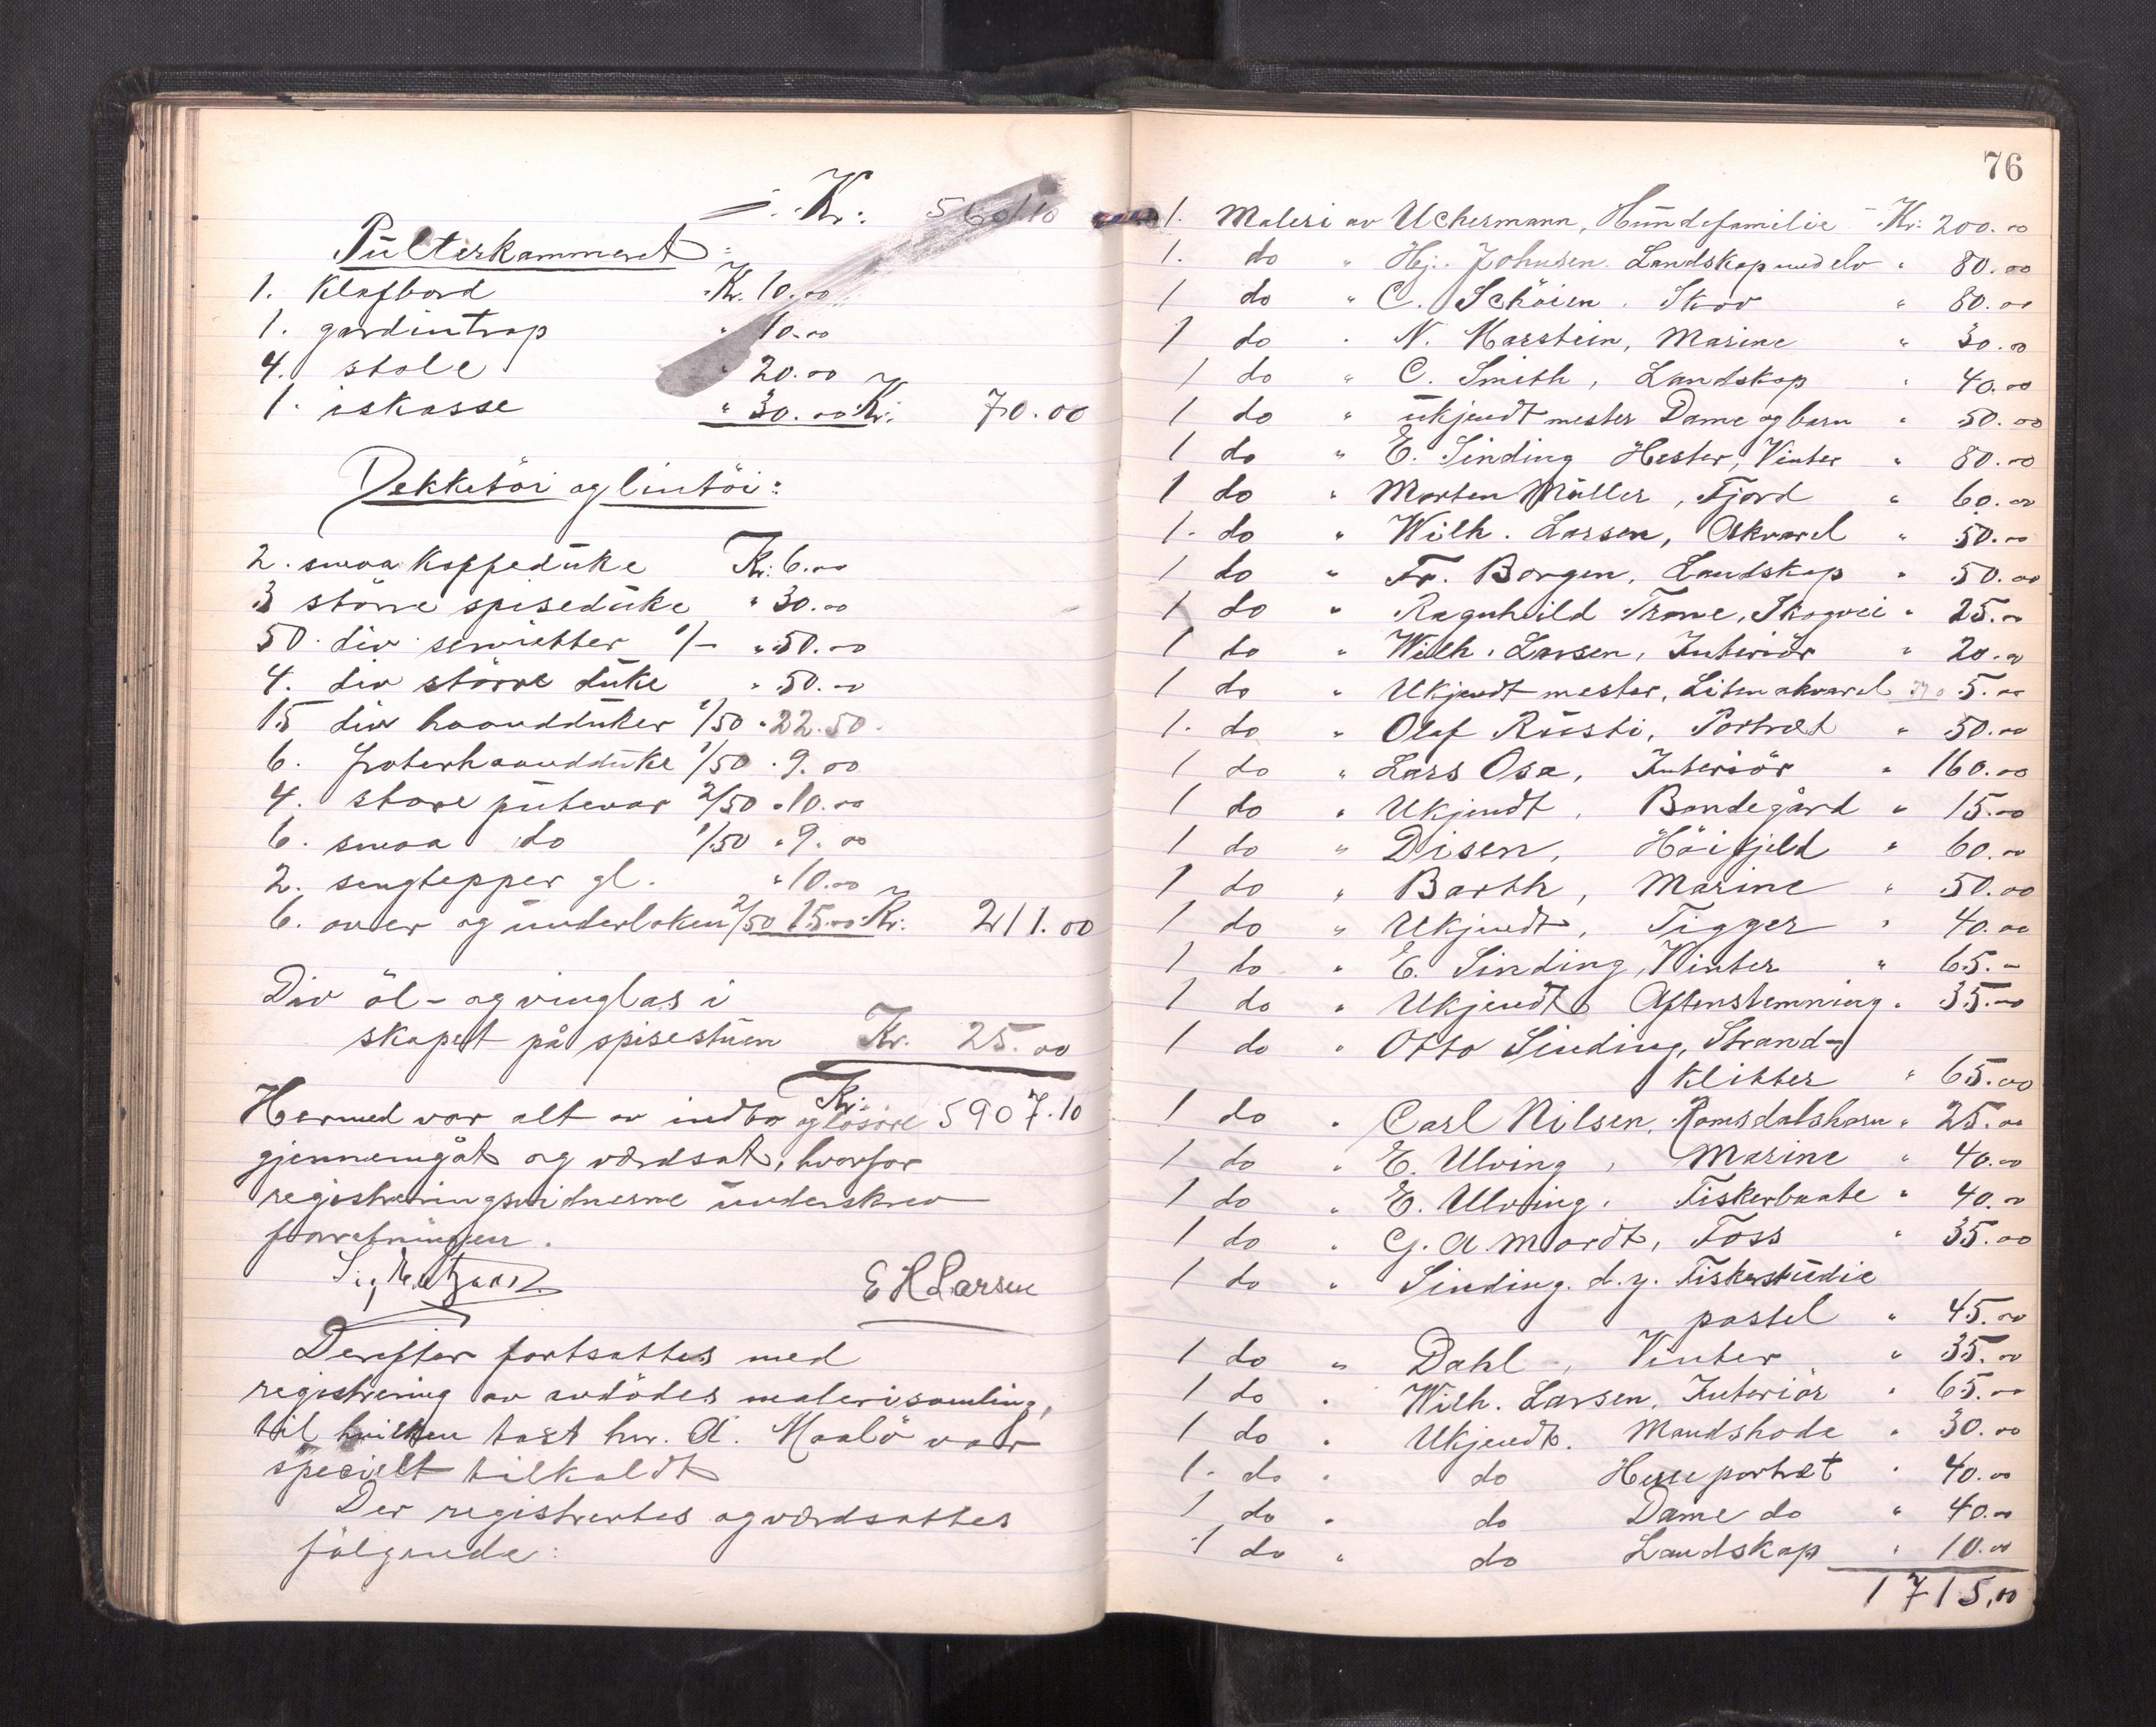 Kr. 5601.10
Pulterkammeret:
1. Klafbord Kr. 10.00
1. gardintrap " 10.00
4. stole " 20.00
1. iskasse " 30.00 Kr. 70.00
Dekketöi og lintöi:
2. smaa kaffeduke Kr. 6.00
3 större spiseduke " 30.00
50. div servietter 1/- " 50.00
4. div större duke " 50.00
15 div haandduker 1/50 " 22.50
6. froterhaandduke 1/50 " 9.00
4. store putevar 2/50 " 10.00
6. smaa do 1/50 " 9.00
2. sengtepper gl. " 10.00
6. over og underlaken 2/50 15.00 Kr. 211.00
Div öl- og vinglas i
skapet på spisestuen Kr. 25.00
Hermed var alt av indbo og lösöre Kr. 5907.10
gjennemgåt og værdsat, hvorfor
registreringsvidnerne underskrev
forretningen.
E H Larsen
Derefter fortsattes med
registrering av avdödes malerisamling,
til hvilken takst hr. A. Maalö var
specielt tilkaldt
Der registrertes og værdsattes
fölgende:
76
1. Maleri av Uchermann, Hundefamilie Kr. 200.00
1. do " Hj. Johnsen. Landskap med elv " 80.00
1 do " C. Schöien. Skov " 80.00
1 do " N. Marstein, Marine " 30.00
1 do " C. Smith, Landskap " 40.00
1 do " ukjendt mester Dame og barn " 50.00
1 do " E. Sinding Hester, Vinter " 80.00
1 do " Morten Müller, Fjord " 60.00
1. do " Wilh. Larsen, Akvarel " 50.00
1 do " Fr. Borgen, Landskap " 50.00
1 do " Ragnhild Trane, Skogvei " 25.00
1 do " Wilh. Larsen, Interiör " 20.00
1 do " Ukjendt mester, Liten akvarel " 5.00
1. do " Olaf Rusti, Portræt " 50.00
1 do " Lars Osa, Interiör " 160.00
1 do " Ukjendt, Bondegård " 15.00
1 do " Disen, Höifjeld " 60.00
1 do " Barth, Marine " 50.00
1 do " Ukjendt, Tigger " 40.00
1 do " E. Sinding, Vinter " 65.-
1 do " Ukjendt, Aftenstemning " 35.00
1 do " Otto Sinding, Strand-
klitter " 65.00
1 do " Carl Nilsen, Romsdalshorn " 25.00
1 do " E. Ulving, Marine " 40.00
1 do " E. Ulving, Fiskerbaate " 40.00
1 do " G. A. Mordt, Foss " 35.00
1 do " Sinding d.y. Fiskerstudie
pastel " 45.00
1 do " Dahl, Vinter " 35.00
1 do " Wilh. Larsen, Interiör " 65.00
1 do " Ukjendt. Mandshode " 30.00
1. do " do Herreportræt " 40.00
1 do " do Dame do " 40.00
1 do " do Landskap " 10.00
1715,00